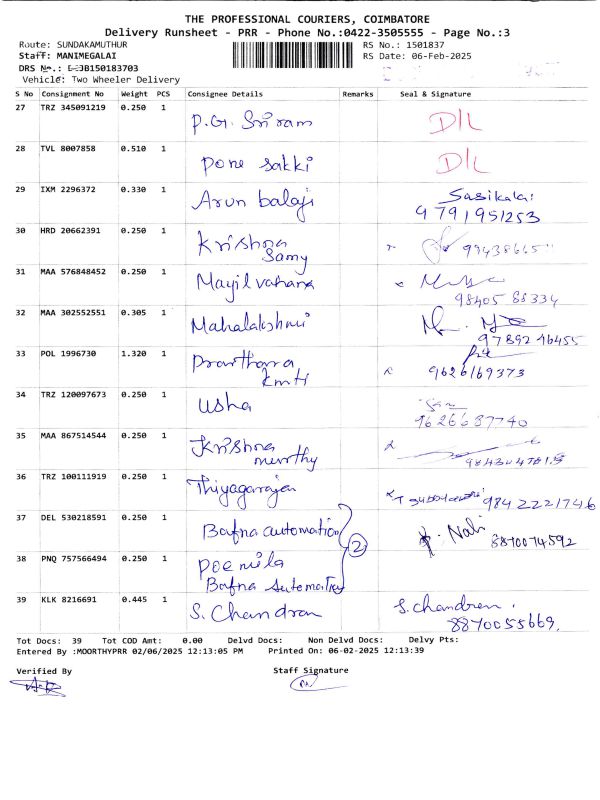 THE PROFESSIONAL COURIERS, COIMBATORE
Delivery Runsheet - PRR - Phone No.:0422-3505555 - Page No.:3
Route: SUNDAKAMUTHUR RS No.: 1501837
Staff: MANIMEGALAI RS Date: 06-Feb-2025
DRS No.: 150183703
Vehicle: Two Wheeler Delivery
S No Consignment No Weight PCS Consignee Details Remarks Seal & Signature
27 TRZ 345091219 0.250 1 P.G. Sriram D/L
28 TVL 8007858 0.510 1 pone sakki D/L
29 IXM 2296372 0.330 1 Arun balaji Sasikala
9791951253
30 HRD 20662391 0.250 1 Krishna
Samy
31 MAA 576848452 0.250 1 Mayilvahana
98405 88334
32 MAA 302552551 0.305 1 Mahalakshmi
97892 46455
33 POL 1996730 1.320 1
9626169373
34 TRZ 120097673 0.250 1 usha
9626687740
35 MAA 867514544 0.250 1 Krishna
murthy
36 TRZ 100111919 0.250 1 Thiyagarajan 9842221746
37 DEL 530218591 0.250 1 Bafna automation 8870074592
2
38 PNQ 757566494 0.250 1
Bafna
39 KLK 8216691 0.445 1 S. Chandran S. chandran.
8870055669.
Tot Docs: 39 Tot COD Amt: 0.00 Delvd Docs: Non Delvd Docs: Delvy Pts:
Entered By :MOORTHYPRR 02/06/2025 12:13:05 PM Printed On: 06-02-2025 12:13:39
Verified By Staff Signature